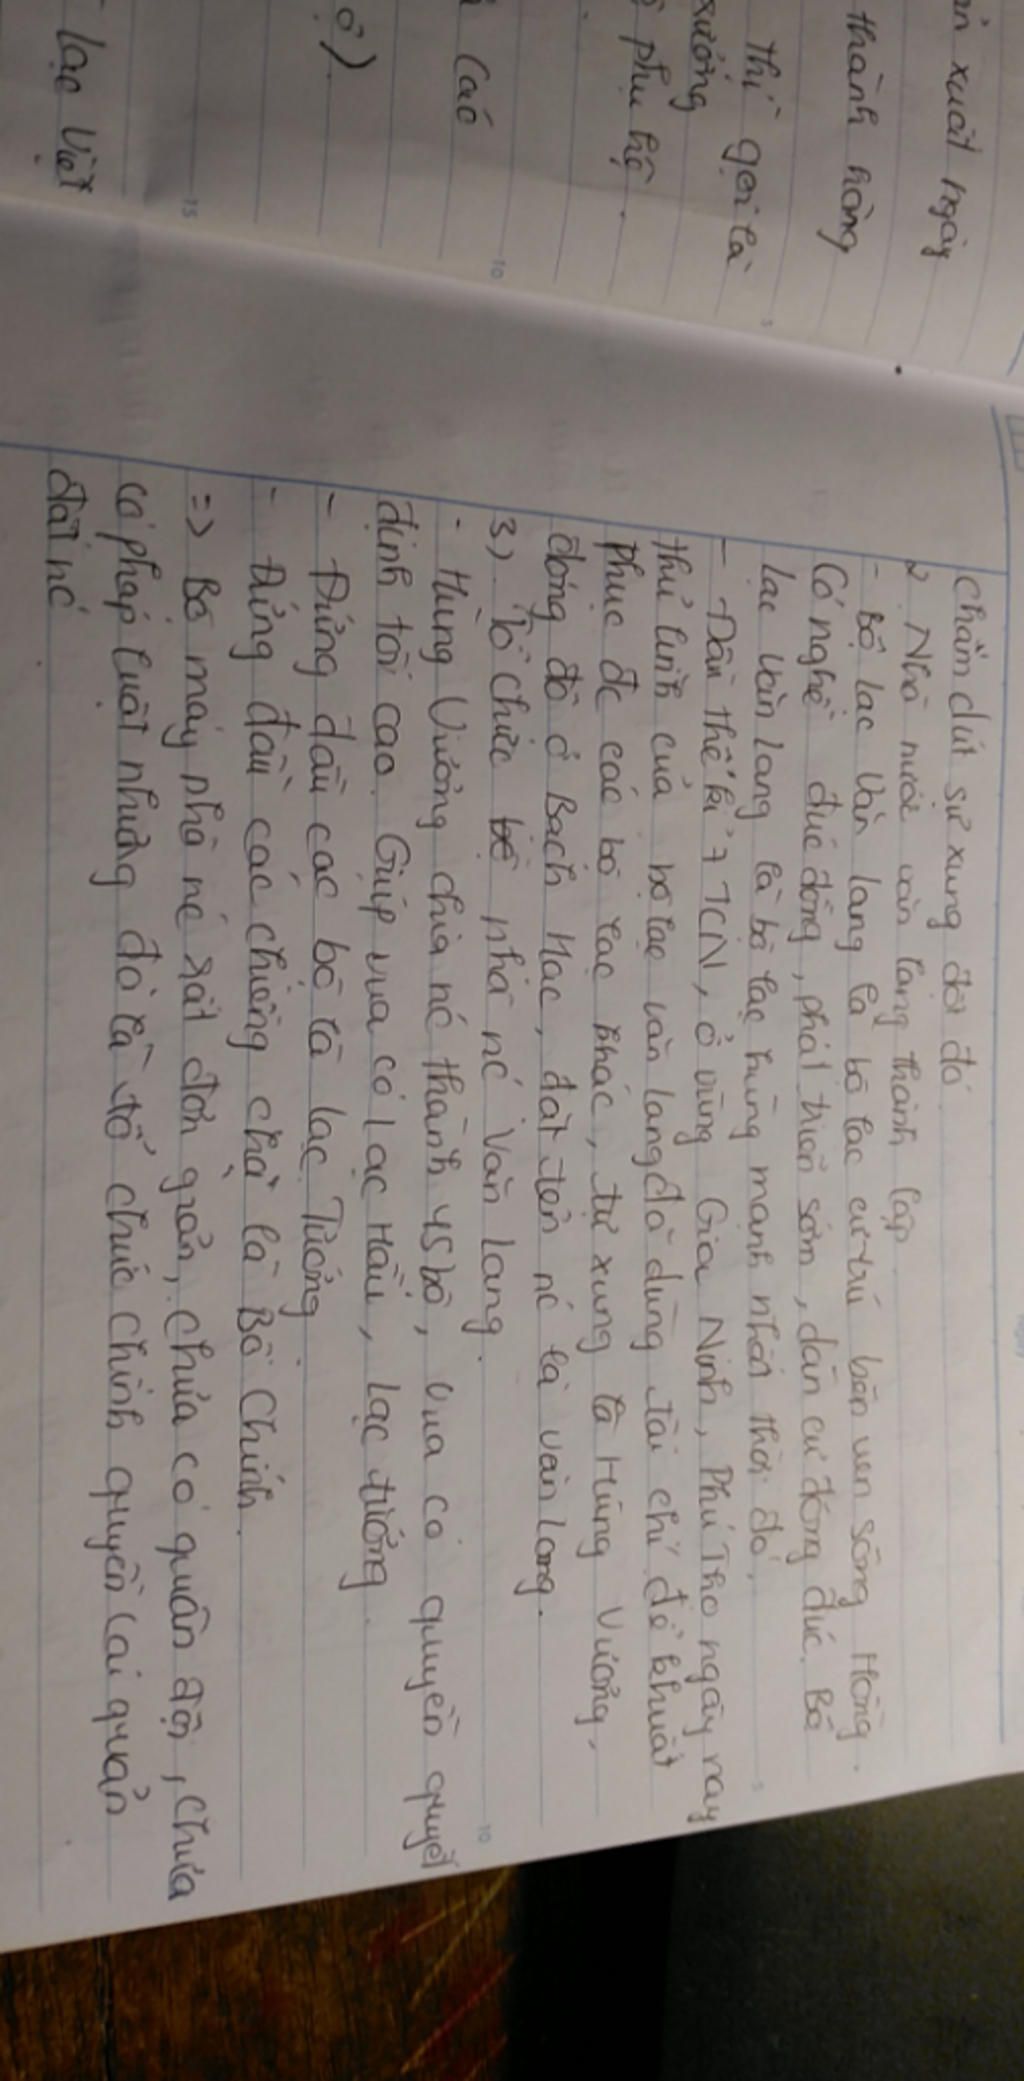 xuất ngày
thành hàng
thì gọi là
xưởng
phụ hệ.
Cáo
ô)
lạc Việt
chấm dứt sự xung đột đó
2 Nhà nước văn lang thành lập
- Bộ lạc Văn lang là bộ lạc cư trú bên ven sông Hồng.
Có nghề đúc đồng, phát triển sớm, dân cư đông đúc. Bộ
lạc Văn lang là bộ lạc hùng mạnh nhất thời đó.
- Dần thế kỉ 7 TCN, ở vùng Gia Ninh, Phú Thọ ngày nay
thủ lĩnh của bộ lạc văn lang đó dùng tài chí để khuất
phục đc các bộ lạc khác, tự xưng là Hùng Vương,
đóng đô ở Bạch Hạc, đặt tên nc là văn lang.
3) Tổ chức nhà nc Văn lang.
- Hùng Vương chia nc thành 15 bộ, vua có quyền quyết
định tối cao. Giúp vua có lạc Hầu, lạc tướng.
- Đứng đầu các bộ là lạc Tướng
- Đứng đầu các chiềng chả là Bồ Chính.
=> Bộ máy nhà nc rất đơn giản, chưa có quân đội, chưa
có pháp luật nhưng đó là tổ chức chính quyền cai quản
đất nc